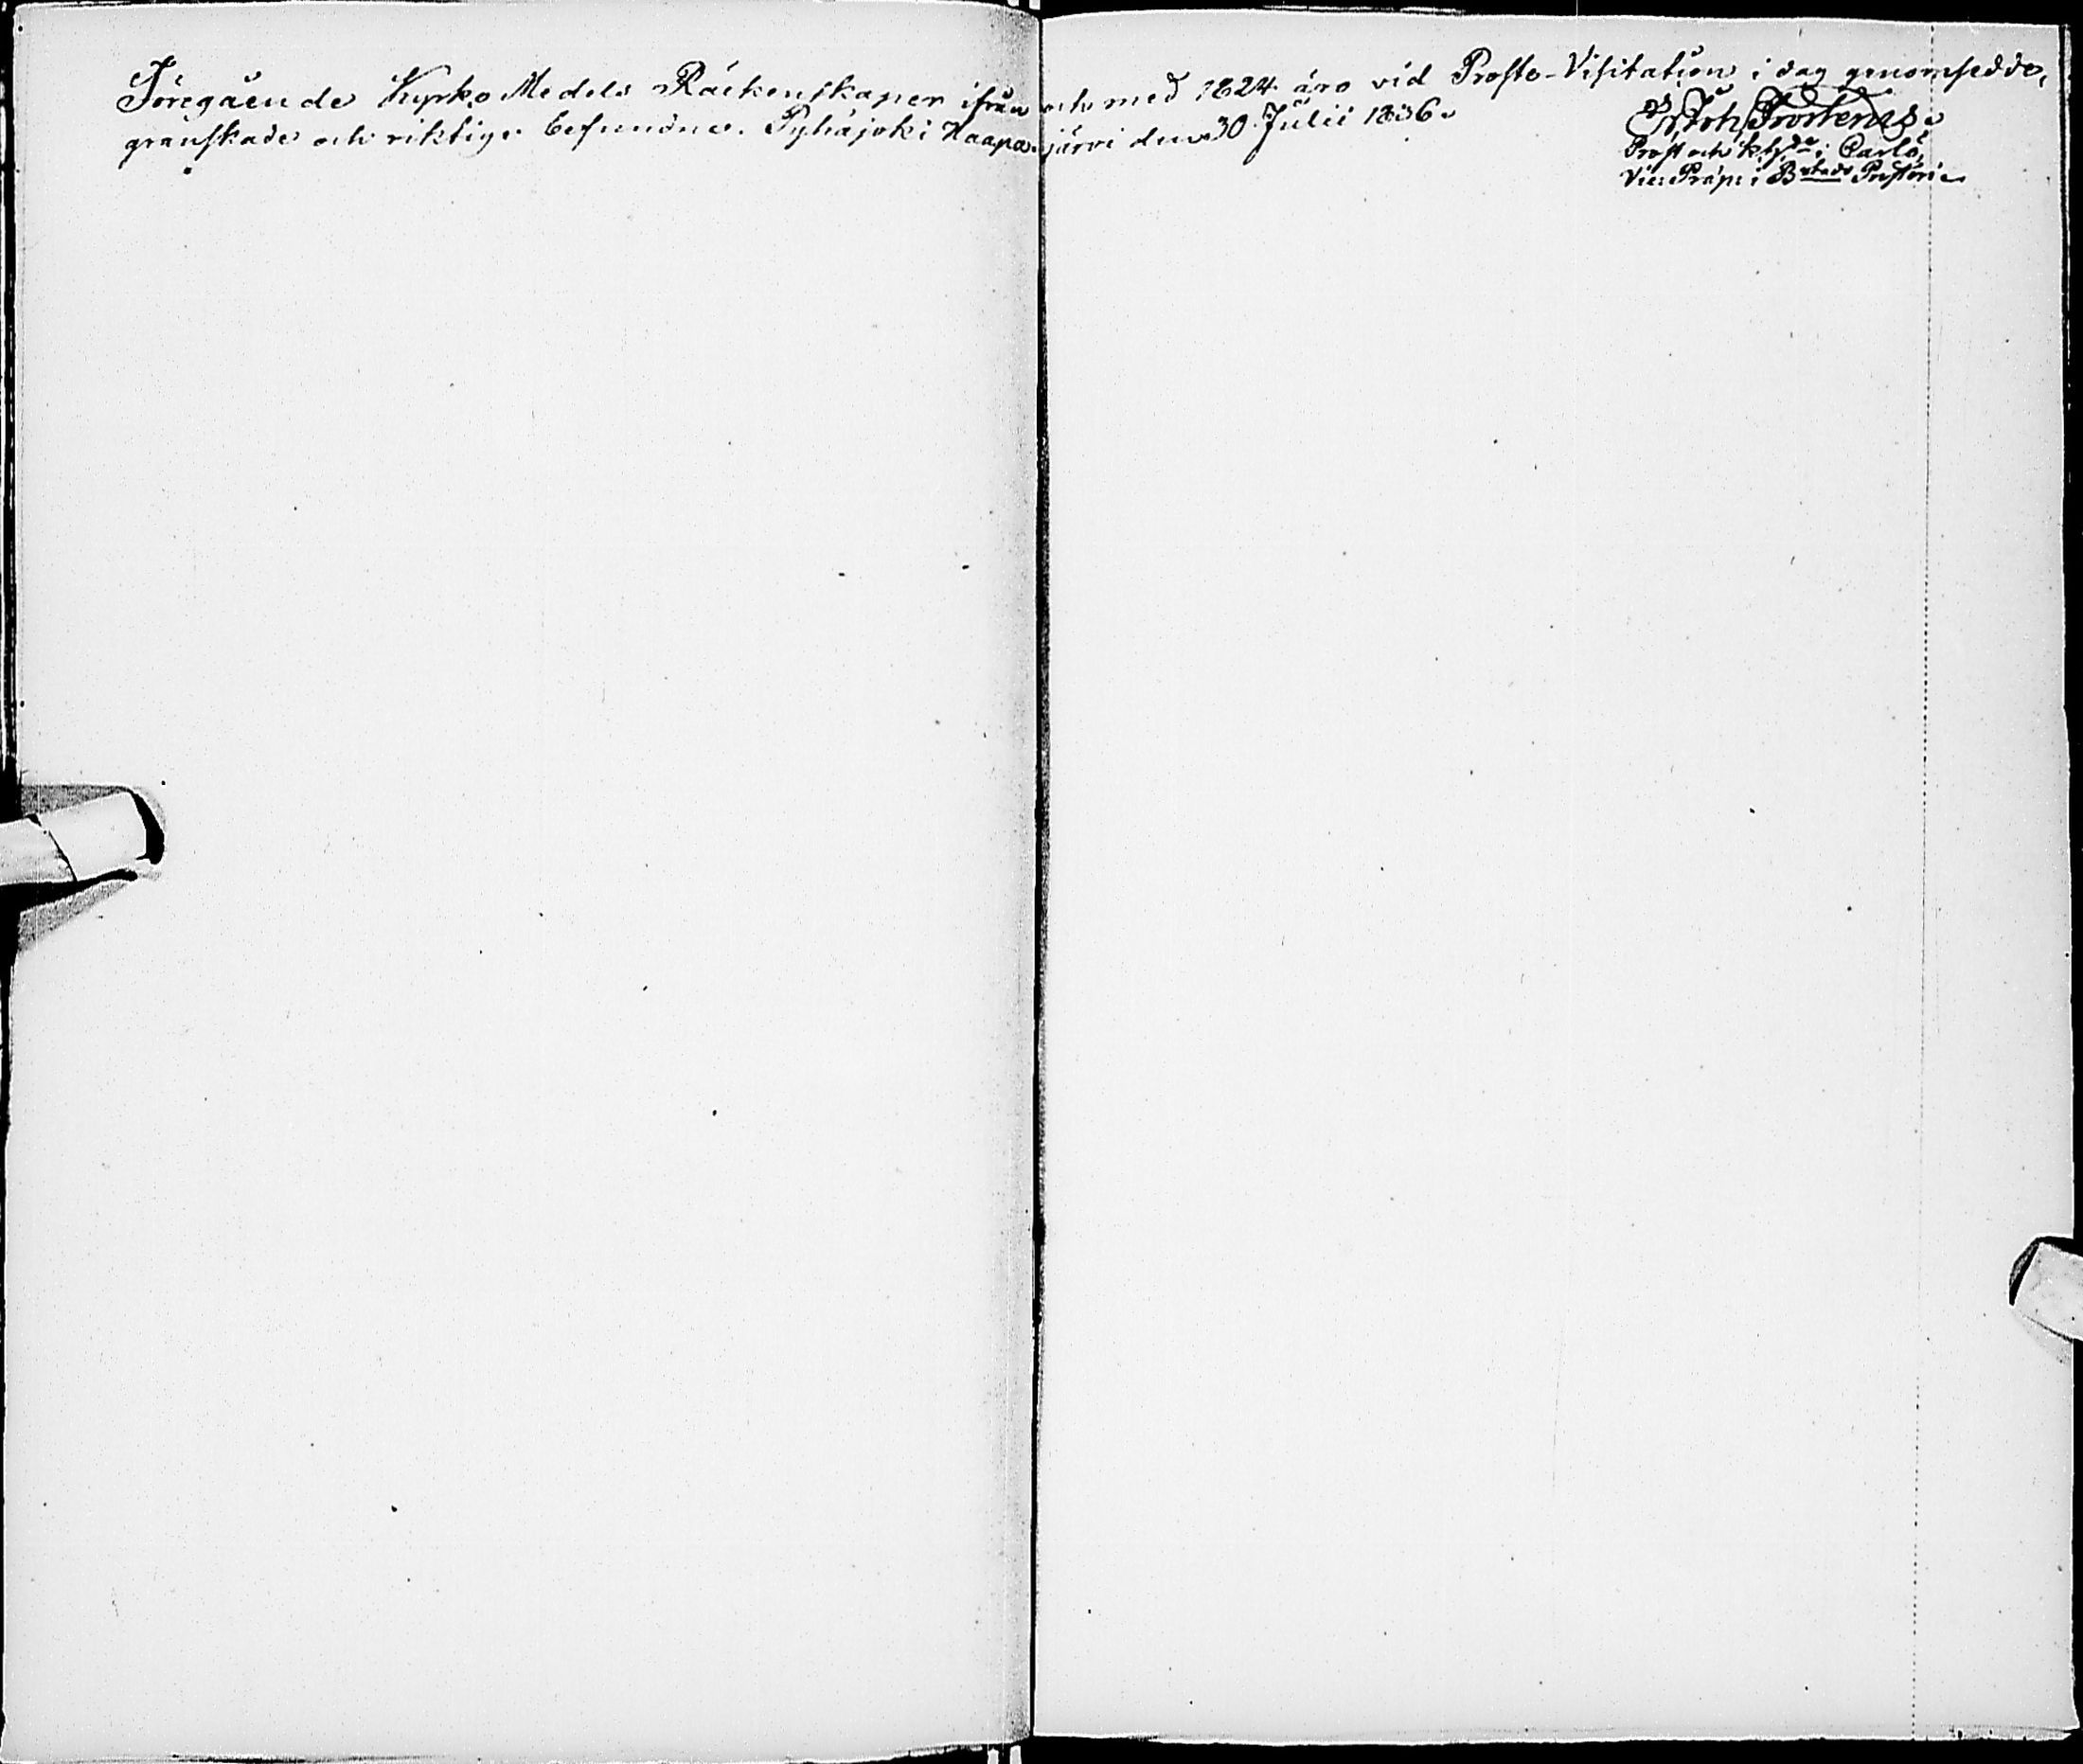 Föregående Kyrko Medels Räckenskaper ifrån och med 1824 äro vid Prosto-Visitation i dag genomsedde,
granskade och riktige befundne. Pyhäjoki Haapajärvi den 30 Julii 1836.
Joh Frosterus.
Prost och Khde i Carlö,
Vice Præp: i Bstads Prosteri